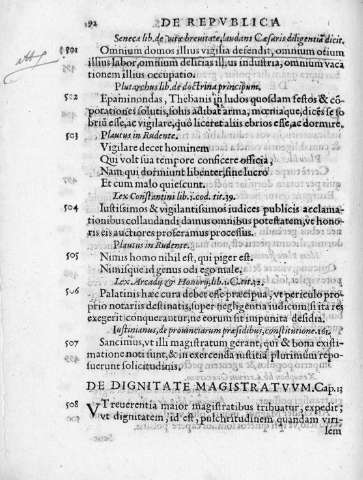 192 DE REPVBLICA
Seneca lib. de vitæ breuitate, laudans Cæsaris diligentiā dicit.
501 Omnium domos illius vigilia defendit, omnium otium
illius labor, omnium delicias illius industria, omnium vaca
tionem illius occupatio.
Plutarchus lib. de doctrina principum.
502 Epaminondas, Thebanis in ludos quosdam festos & cō-
potationes solutis, solus
esse, ac vigilare, quò liceret aliis ebrios esse, ac dormire.
503 Plautus in Rudente.
Vigilare decet hominem
Qui volt sua tempore conficere officia,
Nam qui dormiunt libenter, sine lucro
Et cum malo quiescunt.
Lex Constantini lib. i. cod. tit. 39.
504 Iustissimos & vigilantissimos iudices publicis acclama-
tionibus collaudandi, damus omnibus potestatem, vt hono-
ris eis auctiores proferamus processus.
Plautus in Rudente.
505 Nimis homo nihil est, qui piger est.
Nimisque id genus odi ego male.
Lex Arcadij & Honorij, lib.
506 Palatinis hæc cura debet esse præcipua, vt periculo pro-
prio notarii destinatis, super negligentia iudicum, si ita res
exegerit conquerantur, ne eorum sit impunita desidia.
Iustinianus, de prouinciarum præsidibus, constitutione. 161.
507 Sancimus, vt illi magistratum gerant, qui & bona existi-
matione noti sunt, & in exercenda iustitia plurimum repo-
suerunt solicitudinis.
DE DIGNITATE MAGISTRATVVM. Cap. 13
508 VT reuerentia maior magistratibus tribuatur, expedit,
vt dignitatem, id est, pulchritudinem quandam viri-
lem